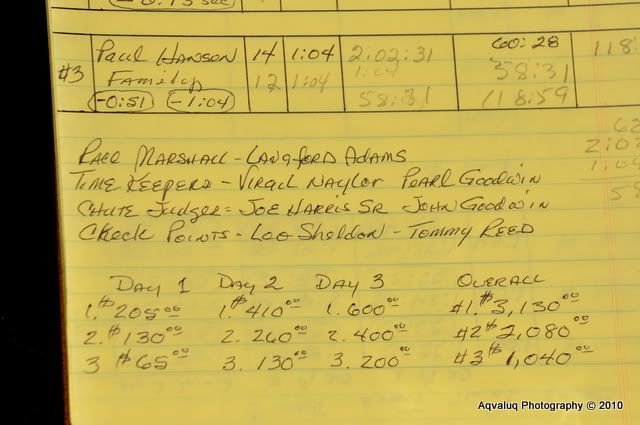 -0:13 sec
#3 Paul Hanson 14 1:04 2:02:31 60:28 118:
Family 12 1:04 1:04 58:31
-0:51 -1:04 58:31 118:59
62
Race Marshall - Langford Adams 2:02
Time Keepers - Virgil Naylor Pearl Goodwin 1:04
Chute Judges = Joe Harris Sr John Goodwin 58
Check Points - Leo Sheldon - Tommy Reed
Day 1 Day 2 Day 3 Overall
1. $205.00 1. $410.00 1. 600.00 #1. $3,130.00
2. $130.00 2. 260.00 2. 400.00 #2 $2,080.00
3 $65.00 3. 130.00 3. 200.00 #3 $1,040.00
Aqvaluq Photography © 2010